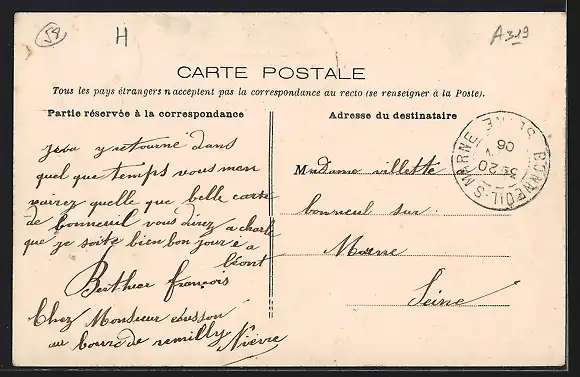 58
H
A319
CARTE POSTALE
Tous les pays étrangers n'acceptent pas la correspondance au recto (se renseigner à la Poste).
Partie réservée à la correspondance
Adresse du destinataire
y retourne dans
quel que temps vous men
quelle que belle carte
de bonneuil vous direz a charle
que je soite bien bon jour é a
léont
Berthier françois
Chez Monsieur
au bourc de remilly Nièvre
Madame villette
bonneul sur
Marne
Seine
BONNEUIL-S-MARNE
SEINE
3E 20
06